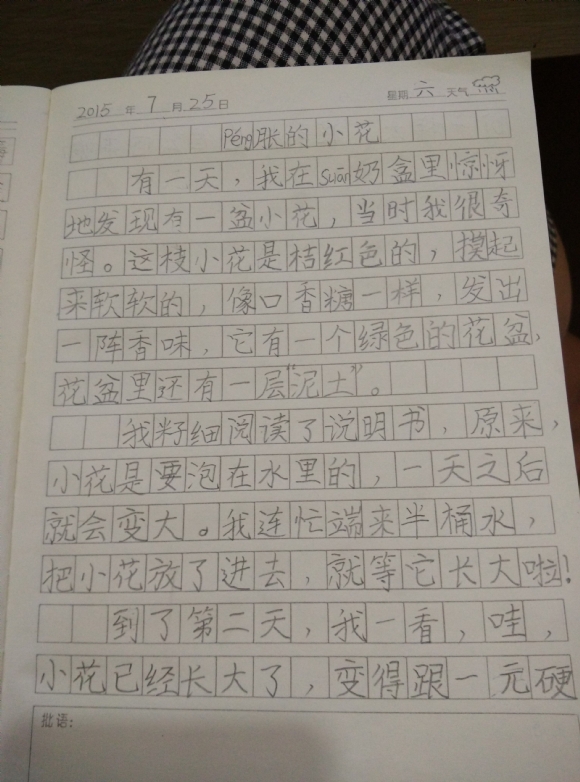 2015 年 7 月 25 日 星期 六 天气
Péng胀的小花
有一天，我在suān奶盒里惊呀
地发现有一盆小花，当时我很奇
怪。这枝小花是桔红色的，摸起
来软软的，像口香糖一样，发出
一阵香味，它有一个绿色的花盆，
花盆里还有一层“泥土”。
我籽细阅读了说明书，原来，
小花是要泡在水里的，一天之后
就会变大。我连忙端来半桶水，
把小花放了进去，就等它长大啦！
到了第二天，我一看，哇，
小花已经长大了，变得跟一元硬
批语：